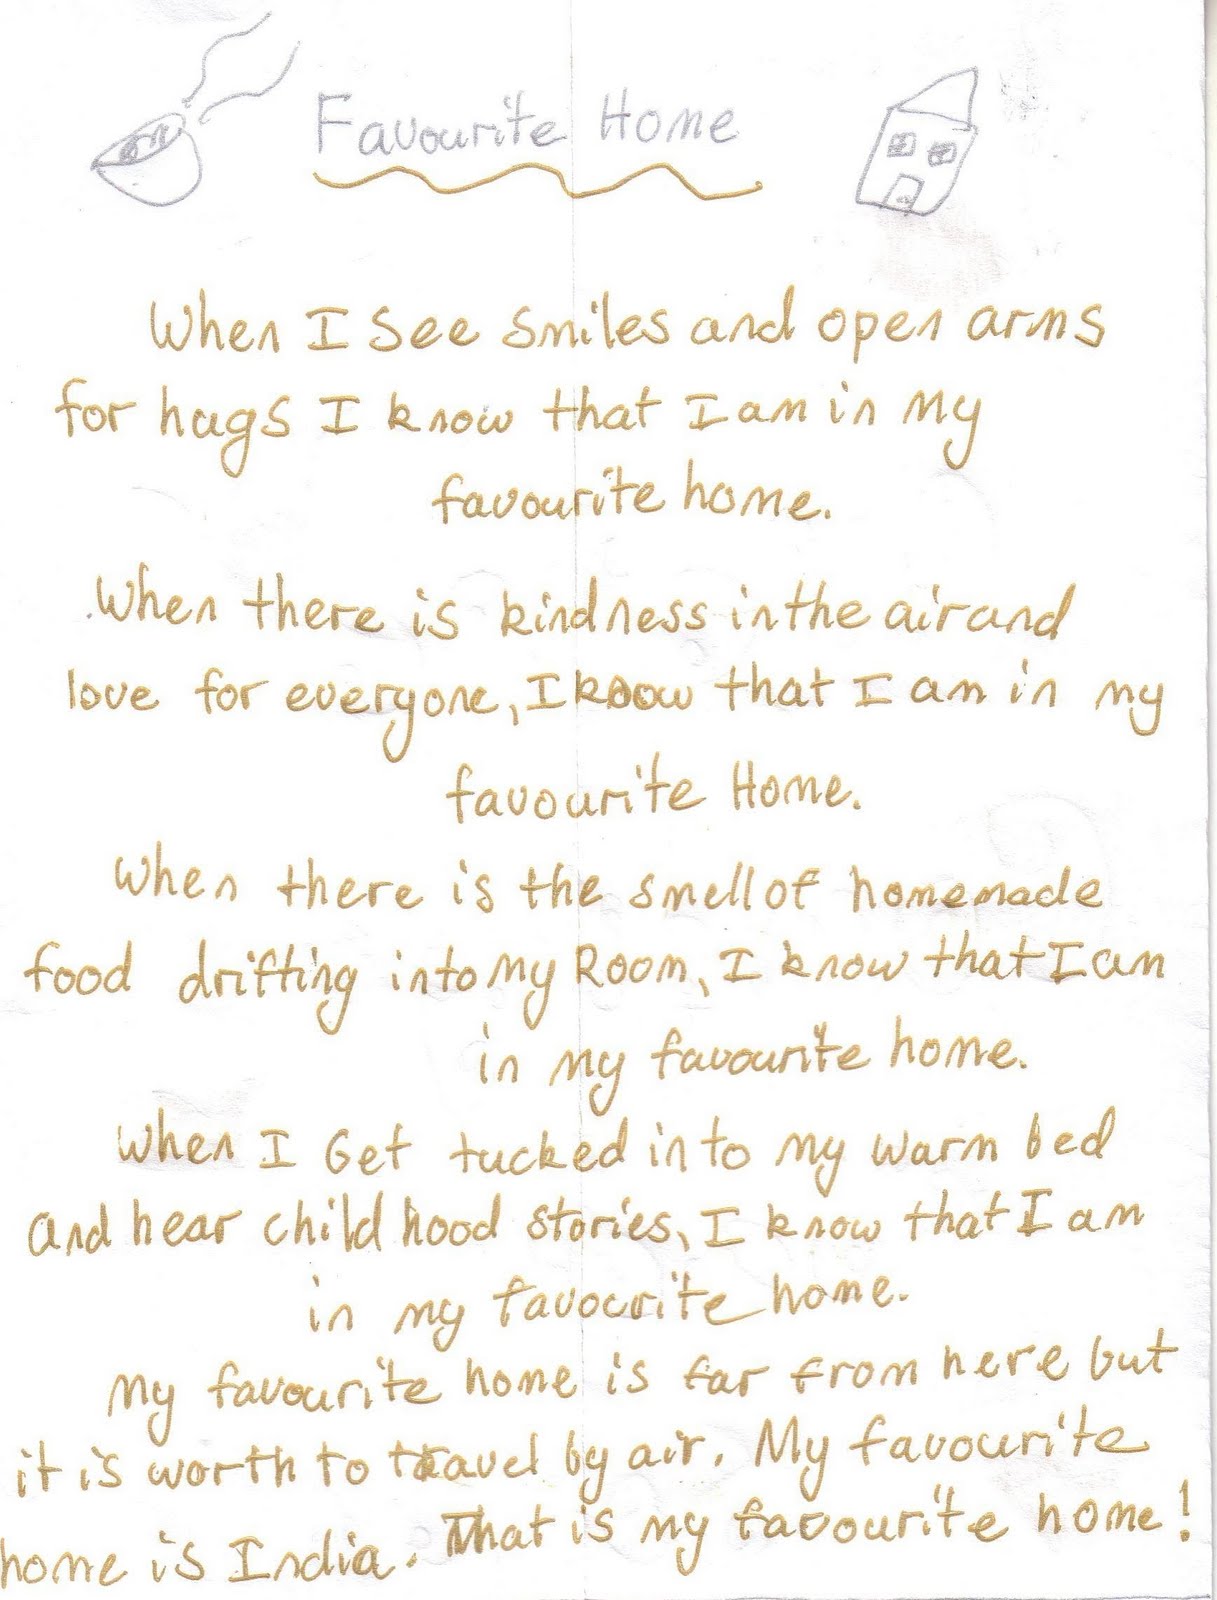 Favourite Home
When I see smiles and open arms
for hugs I know that I am in My
favourite home.
When there is kindness in the air and
love for everyone, I know that I am in my
favourite Home.
When there is the smell of homemade
food drifting into My Room, I know that I am
in my favourite home.
When I Get tucked into my warm bed
and hear childhood stories, I know that I am
in my favourite home.
My favourite home is far from here but
it is worth to travel by air. My favourite
home is India. That is my favourite home!